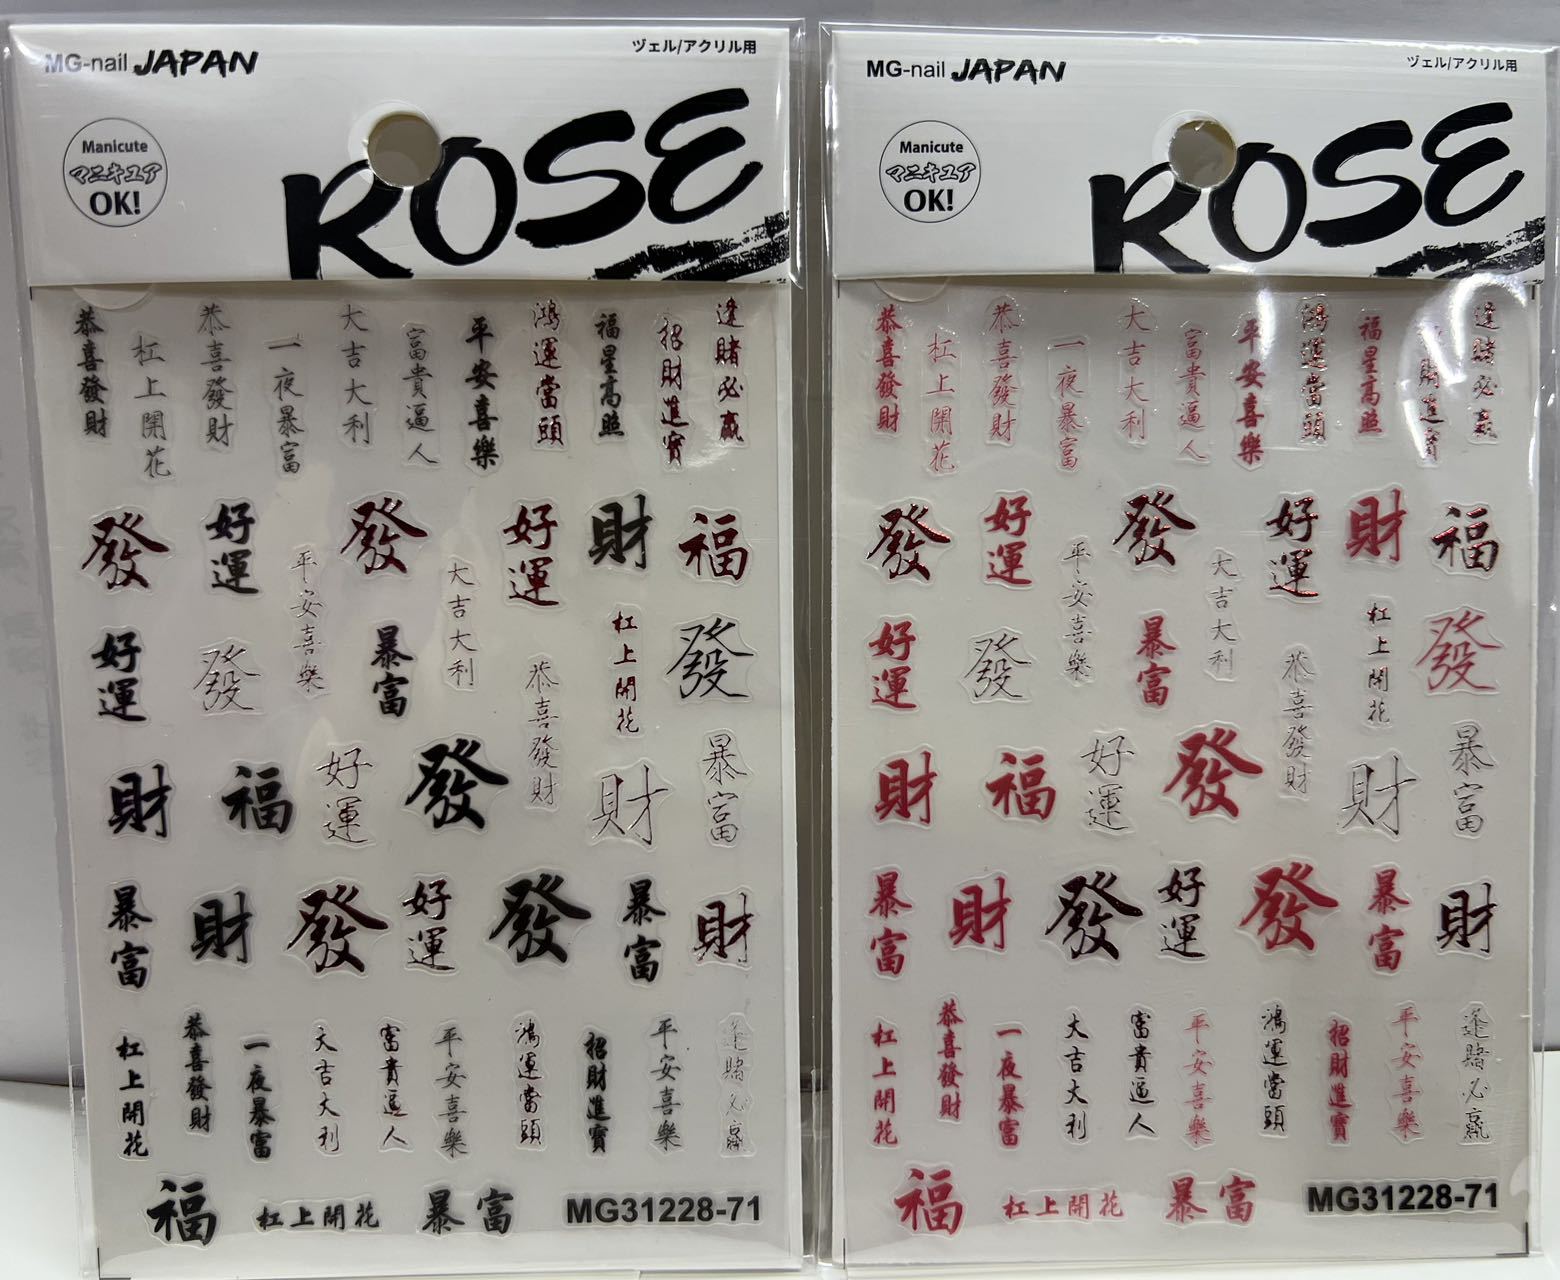 MG-nail JAPAN
ヅェル/アクリル用
Manicute
マニキュア
OK!
ROSE
恭喜發財
杠上開花
恭喜發財
一夜暴富
大吉大利
富貴逼人
平安喜樂
鴻運當頭
福星高照
招財進寶
逢賭必贏
發
好運
發
好運
財
福
平安喜樂
大吉大利
杠上開花
好運
發
暴富
恭喜發財
發
財
福
好運
發
財
暴富
暴富
財
發
好運
發
暴富
財
杠上開花
恭喜發財
一夜暴富
大吉大利
富貴逼人
平安喜樂
鴻運當頭
招財進寶
平安喜樂
逢賭必贏
福
杠上開花
暴富
MG31228-71
MG-nail JAPAN
ヅェル/アクリル用
Manicute
マニキュア
OK!
ROSE
恭喜發財
杠上開花
恭喜發財
一夜暴富
大吉大利
富貴逼人
平安喜樂
鴻運當頭
福星高照
財進寶
逢賭必贏
發
好運
發
好運
財
福
平安喜樂
大吉大利
杠上開花
好運
發
暴富
恭喜發財
發
財
福
好運
發
財
暴富
暴富
財
發
好運
發
暴富
財
杠上開花
恭喜發財
一夜暴富
大吉大利
富貴逼人
平安喜樂
鴻運當頭
招財進寶
平安喜樂
逢賭必贏
福
杠上開花
暴富
MG31228-71